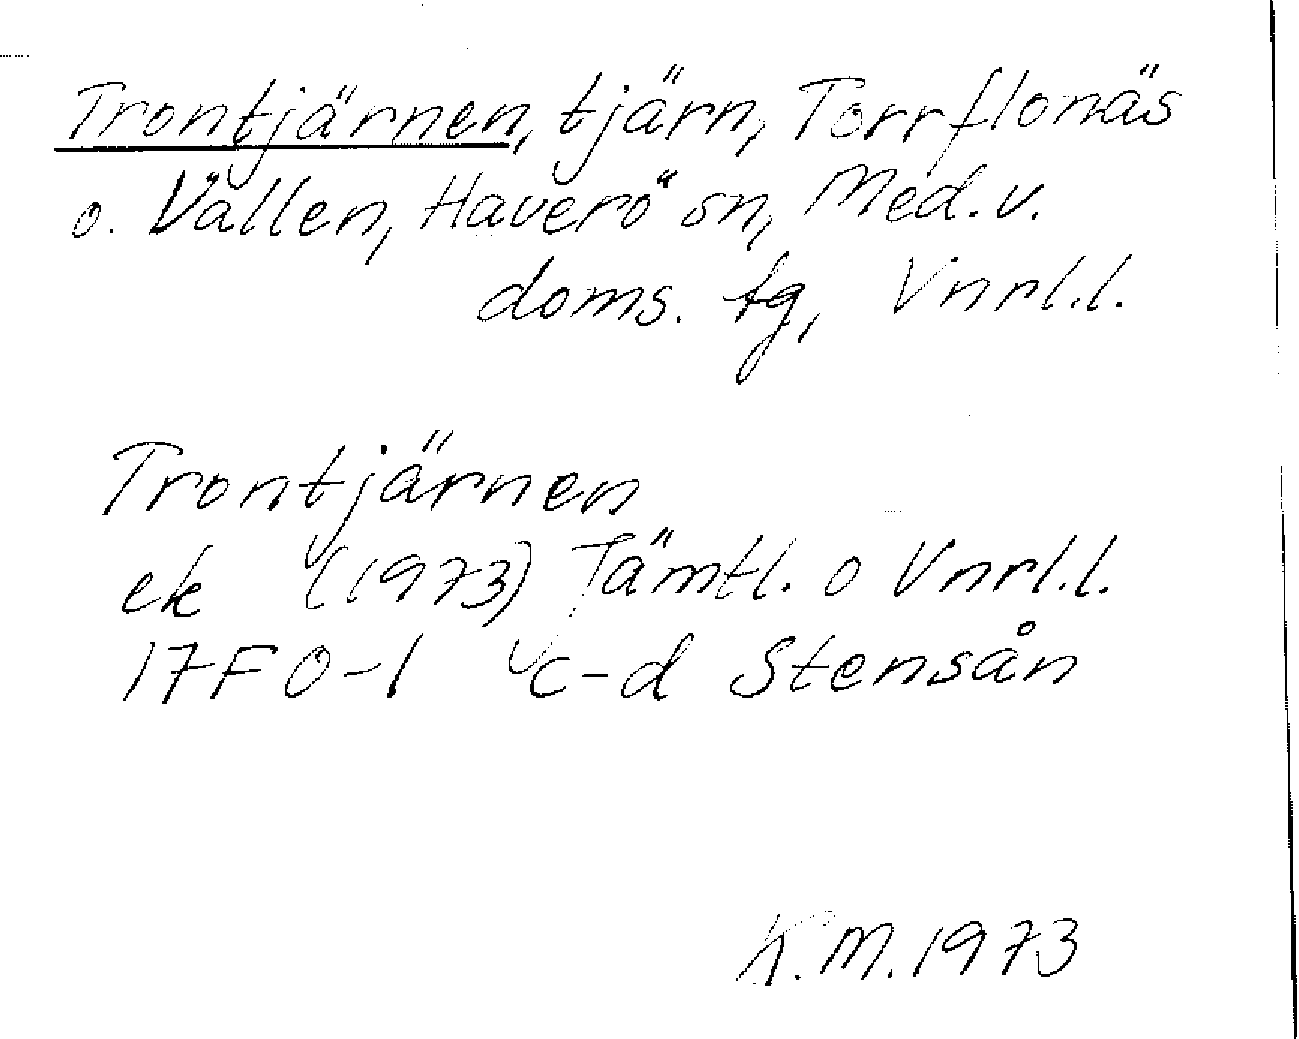 Trontjärnen, tjärn, Torrflonäs
o. Vallen, Haverö sn, Med.v.
doms. tg, Vnrl.l.
Trontjärnen
ek (1973) Jämtl. o Vnrl.l.
17F 0-1 c-d Stensån
K.M. 1973